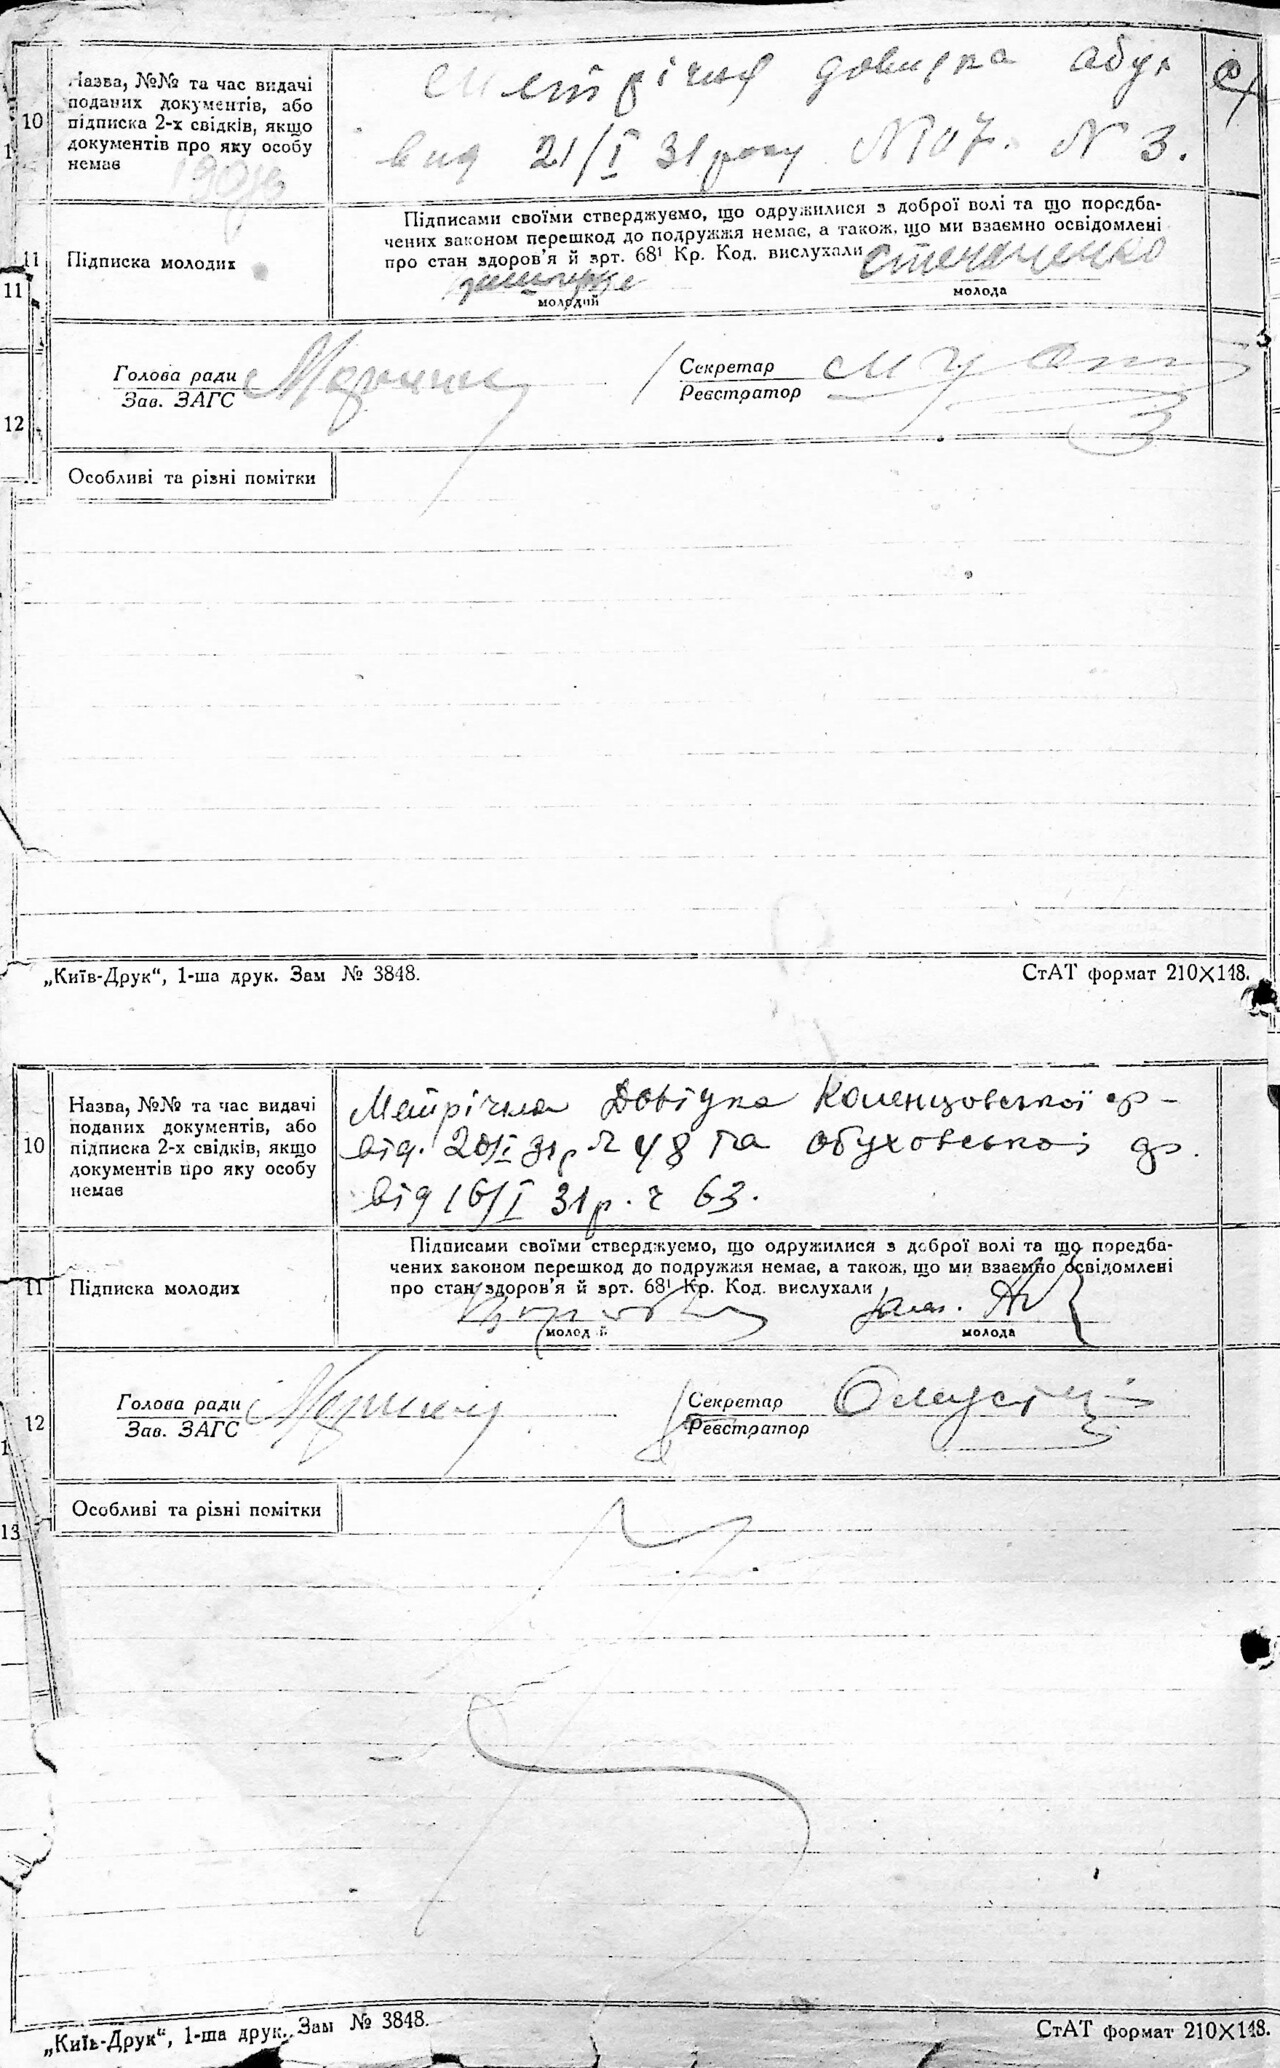 Назва, №№ та час видачі
поданих документів, або
10 підписка 2-х свідків, якщо
документів про яку особу
немає
Метрічна довирка абух
вид 21/I 31 року N 107. N 3.
11 Підписка молодих
Підписами своїми стверджуємо, що одружилися з доброї волі та що передба-
чених законом перешкод до подружжя немає, а також, що ми взаємно освідомлені
про стан здоров'я й арт. 68¹ Кр. Код. вислухали
молодий
молода
11
12
Голова ради
Зав. ЗАГС
Секретар
Реєстратор
Особливі та різні помітки
„Київ-Друк“, 1-ша друк. Зам № 3848.
СтАТ формат 210×148.
Назва, №№ та час видачі
поданих документів, або
10 підписка 2-х свідків, якщо
документів про яку особу
немає
Метрічна Довідка Коленцовської ср-
від. 20/I 31р ч 48 та обуховської др.
від 16/I 31р. ч 63.
11 Підписка молодих
Підписами своїми стверджуємо, що одружилися з доброї волі та що передба-
чених законом перешкод до подружжя немає, а також, що ми взаємно освідомлені
про стан здоров'я й арт. 68¹ Кр. Код. вислухали
молодий
молода
12
Голова ради
Зав. ЗАГС
Секретар
Реєстратор
Особливі та різні помітки
13
„Київ-Друк“, 1-ша друк. Зам № 3848.
СтАТ формат 210×148.